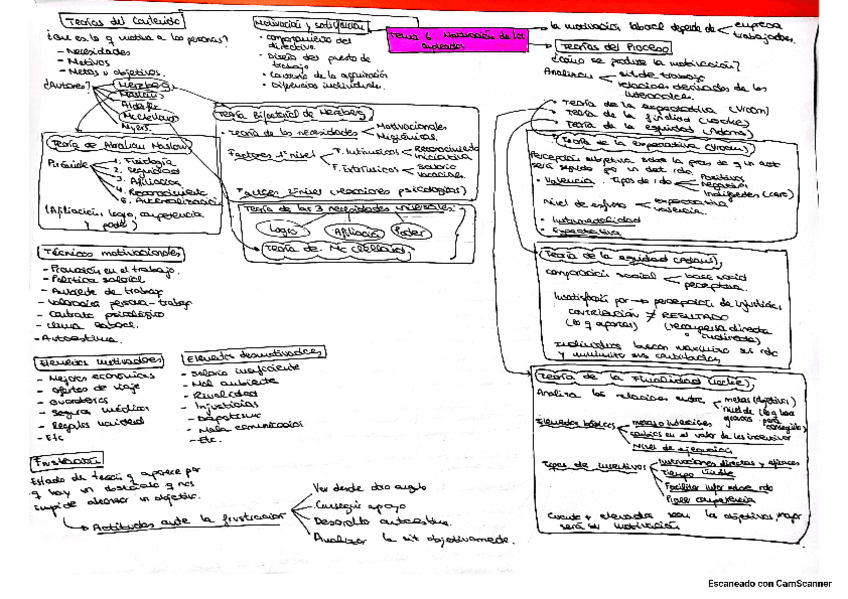 Teorías del Contenido
¿Que es lo q motiva a las personas?
- Necesidades
- Motivos
- Metas u objetivos.
¿Autores?
Herzberg
Maslow
Alderfer
McClelland
Myers.
Motivación y satisfacción
• comportamiento del
directivo.
• Diseño del puesto de
trabajo
• Diferencias individuales.
Tema 6. Motivación de los
empleados
la motivación laboral depende de
empresa
trabajador.
Teorías del Proceso
¿Cómo se produce la motivación?
Analizan
sit de trabajo
relaciones derivadas de los
• Teoría de la expectativa (Vroom)
• Teoría de la finalidad (Locke)
• Teoría de la equidad (Adams)
Teoría de Abraham Maslow
Pirámide
1. Fisiología
2. Seguridad
3. Afiliación
4. Reconocimiento
(Afiliación, logro, competencia
y poder)
Teoría Bifactorial de Herzberg
• Teoría de las necesidades
Motivacionales
Higiénicas.
Factores 1º nivel
F. Intrínsecos
Reconocimiento
iniciativa
F. Extrínsecos
salario
vacaciones.
Factores 2º nivel (reacciones psicológicas)
Teoría de las 3 necesidades universales:
Logro
Afiliación
Poder
Teoría de Mc Clelland
Teoría de la expectativa (Vroom)
• Valencia. Tipos de rdo
Positivos
negativos
Indiferentes (cero)
Nivel de esfuerzo
expectativa
valencia.
• Instrumentalidad
• Expectativa
Técnicas motivacionales
- Promoción en el trabajo.
- Política salarial
- Ambiente de trabajo
- Valoración persona-trabajo
- Contrato psicológico
- Clima laboral.
- Autoestima.
Teoría de la equidad (Adams)
comparación social
base social
perceptiva.
Insatisfacción por → percepción de injusticias
CONTRIBUCIÓN ≠ RESULTADO
(lo q aportas) (recompensa directa
o indirecta)
Individuos buscan maximizar sus rdo
y minimizar sus contribuciones
Elementos motivadores
- Mejoras económicas
- Ofertas de viaje
- Guarderías
- Seguros médicos
- Regalos navidad
- Etc
Elementos desmotivadores
- Salario insuficiente
- Mal ambiente
- Rivalidad
- Injusticias
- Mala comunicación
- Etc.
Teoría de la Finalidad (Locke)
Analiza las relaciones entre
metas (objetivos)
Elementos básicos
metas o intenciones
cambios en el valor de los incentivos
Nivel de ejecución
Tipos de incentivos
Instrucciones directas y eficaces
Tiempo límite
Facilitar info sobre rdo
Frustración
Estado de tensión q aparece por
q hay un obstáculo q nos
impide alcanzar un objetivo.
Actitudes ante la frustración
Ver desde otro angulo
Conseguir apoyo
Desarrollo autoestima.
Analizar la sit objetivamente.
Cuanto + elevados sean los objetivos, mayor
será la motivación
Escaneado con CamScanner